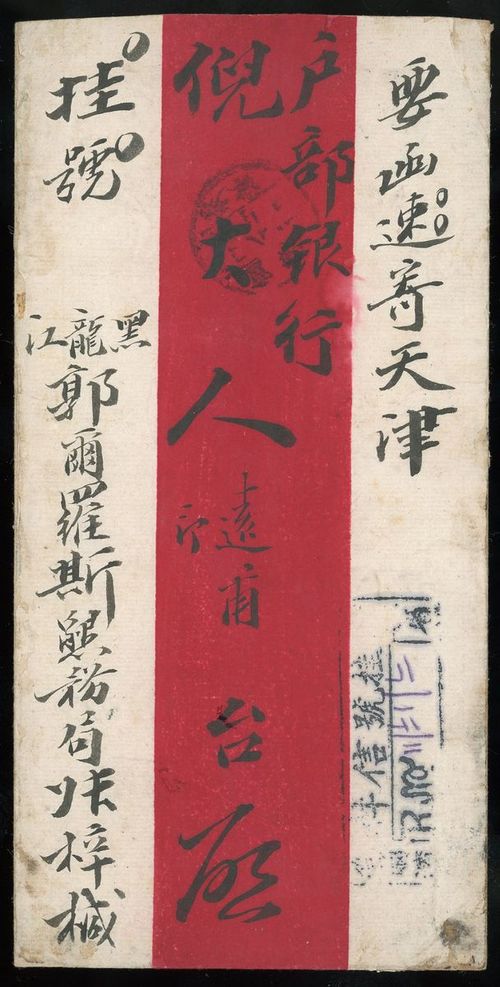 要函速寄天津
户部銀行
倪大人印遠甫台啟
挂號
黑龍江郭爾羅斯墾務局梓椷
挂號
信
R No